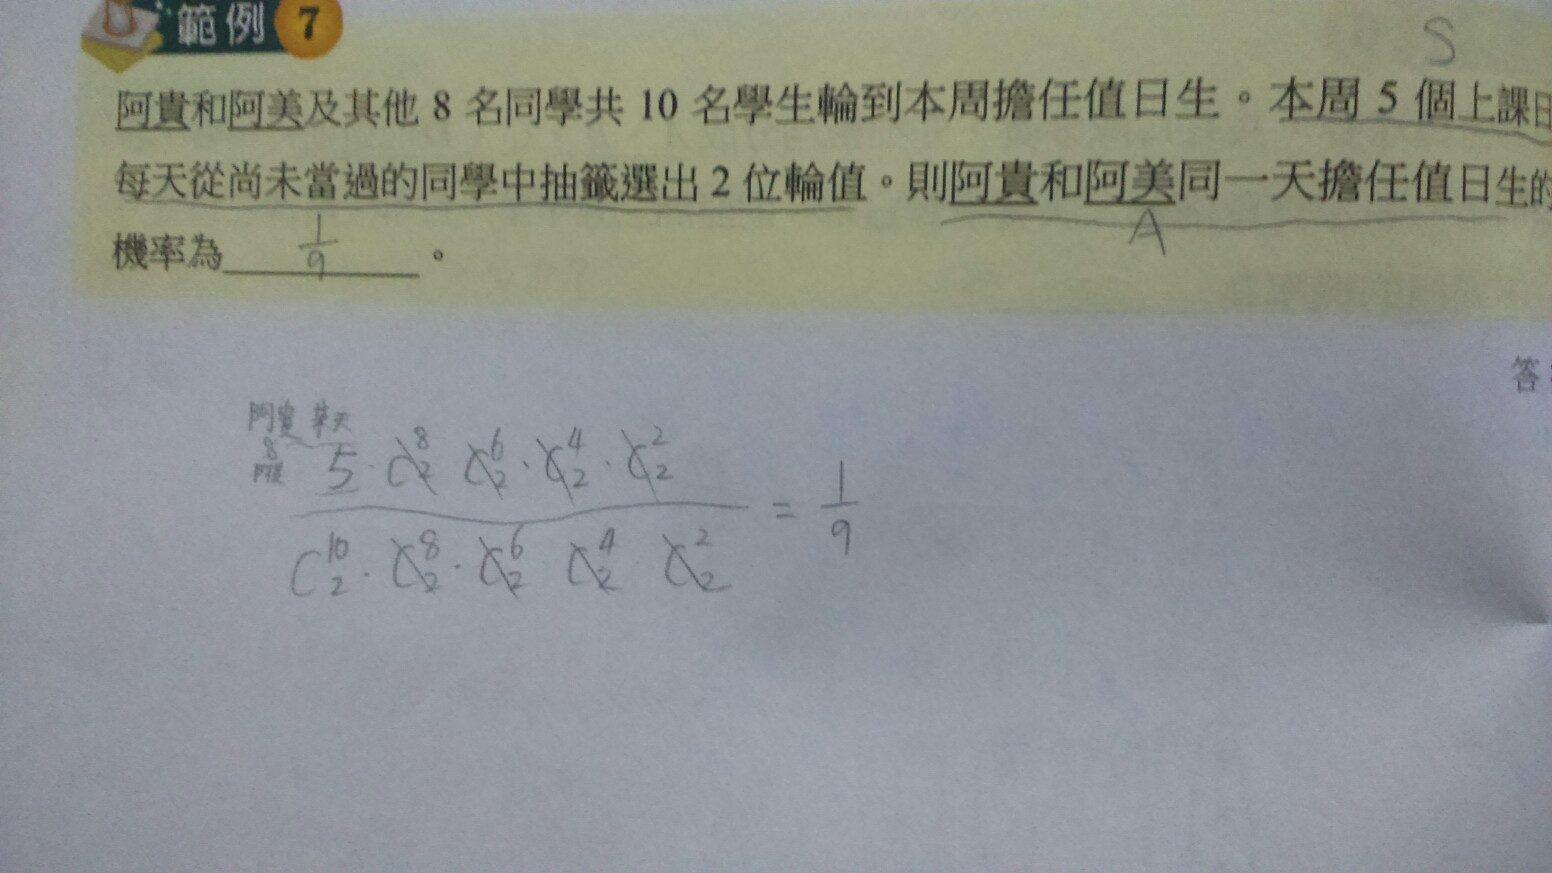 範例 7
S
阿貴和阿美及其他 8 名同學共 10 名學生輪到本周擔任值日生。本周 5 個上課日
每天從尚未當過的同學中抽籤選出 2 位輪值。則阿貴和阿美同一天擔任值日生的
A
機率為 1/9 。
答
阿貴
8
5 · C⁸₂ C⁶₂ · C⁴₂ · C²₂
C¹⁰₂ · C⁸₂ · C⁶₂ C⁴₂ C²₂
= 1/9